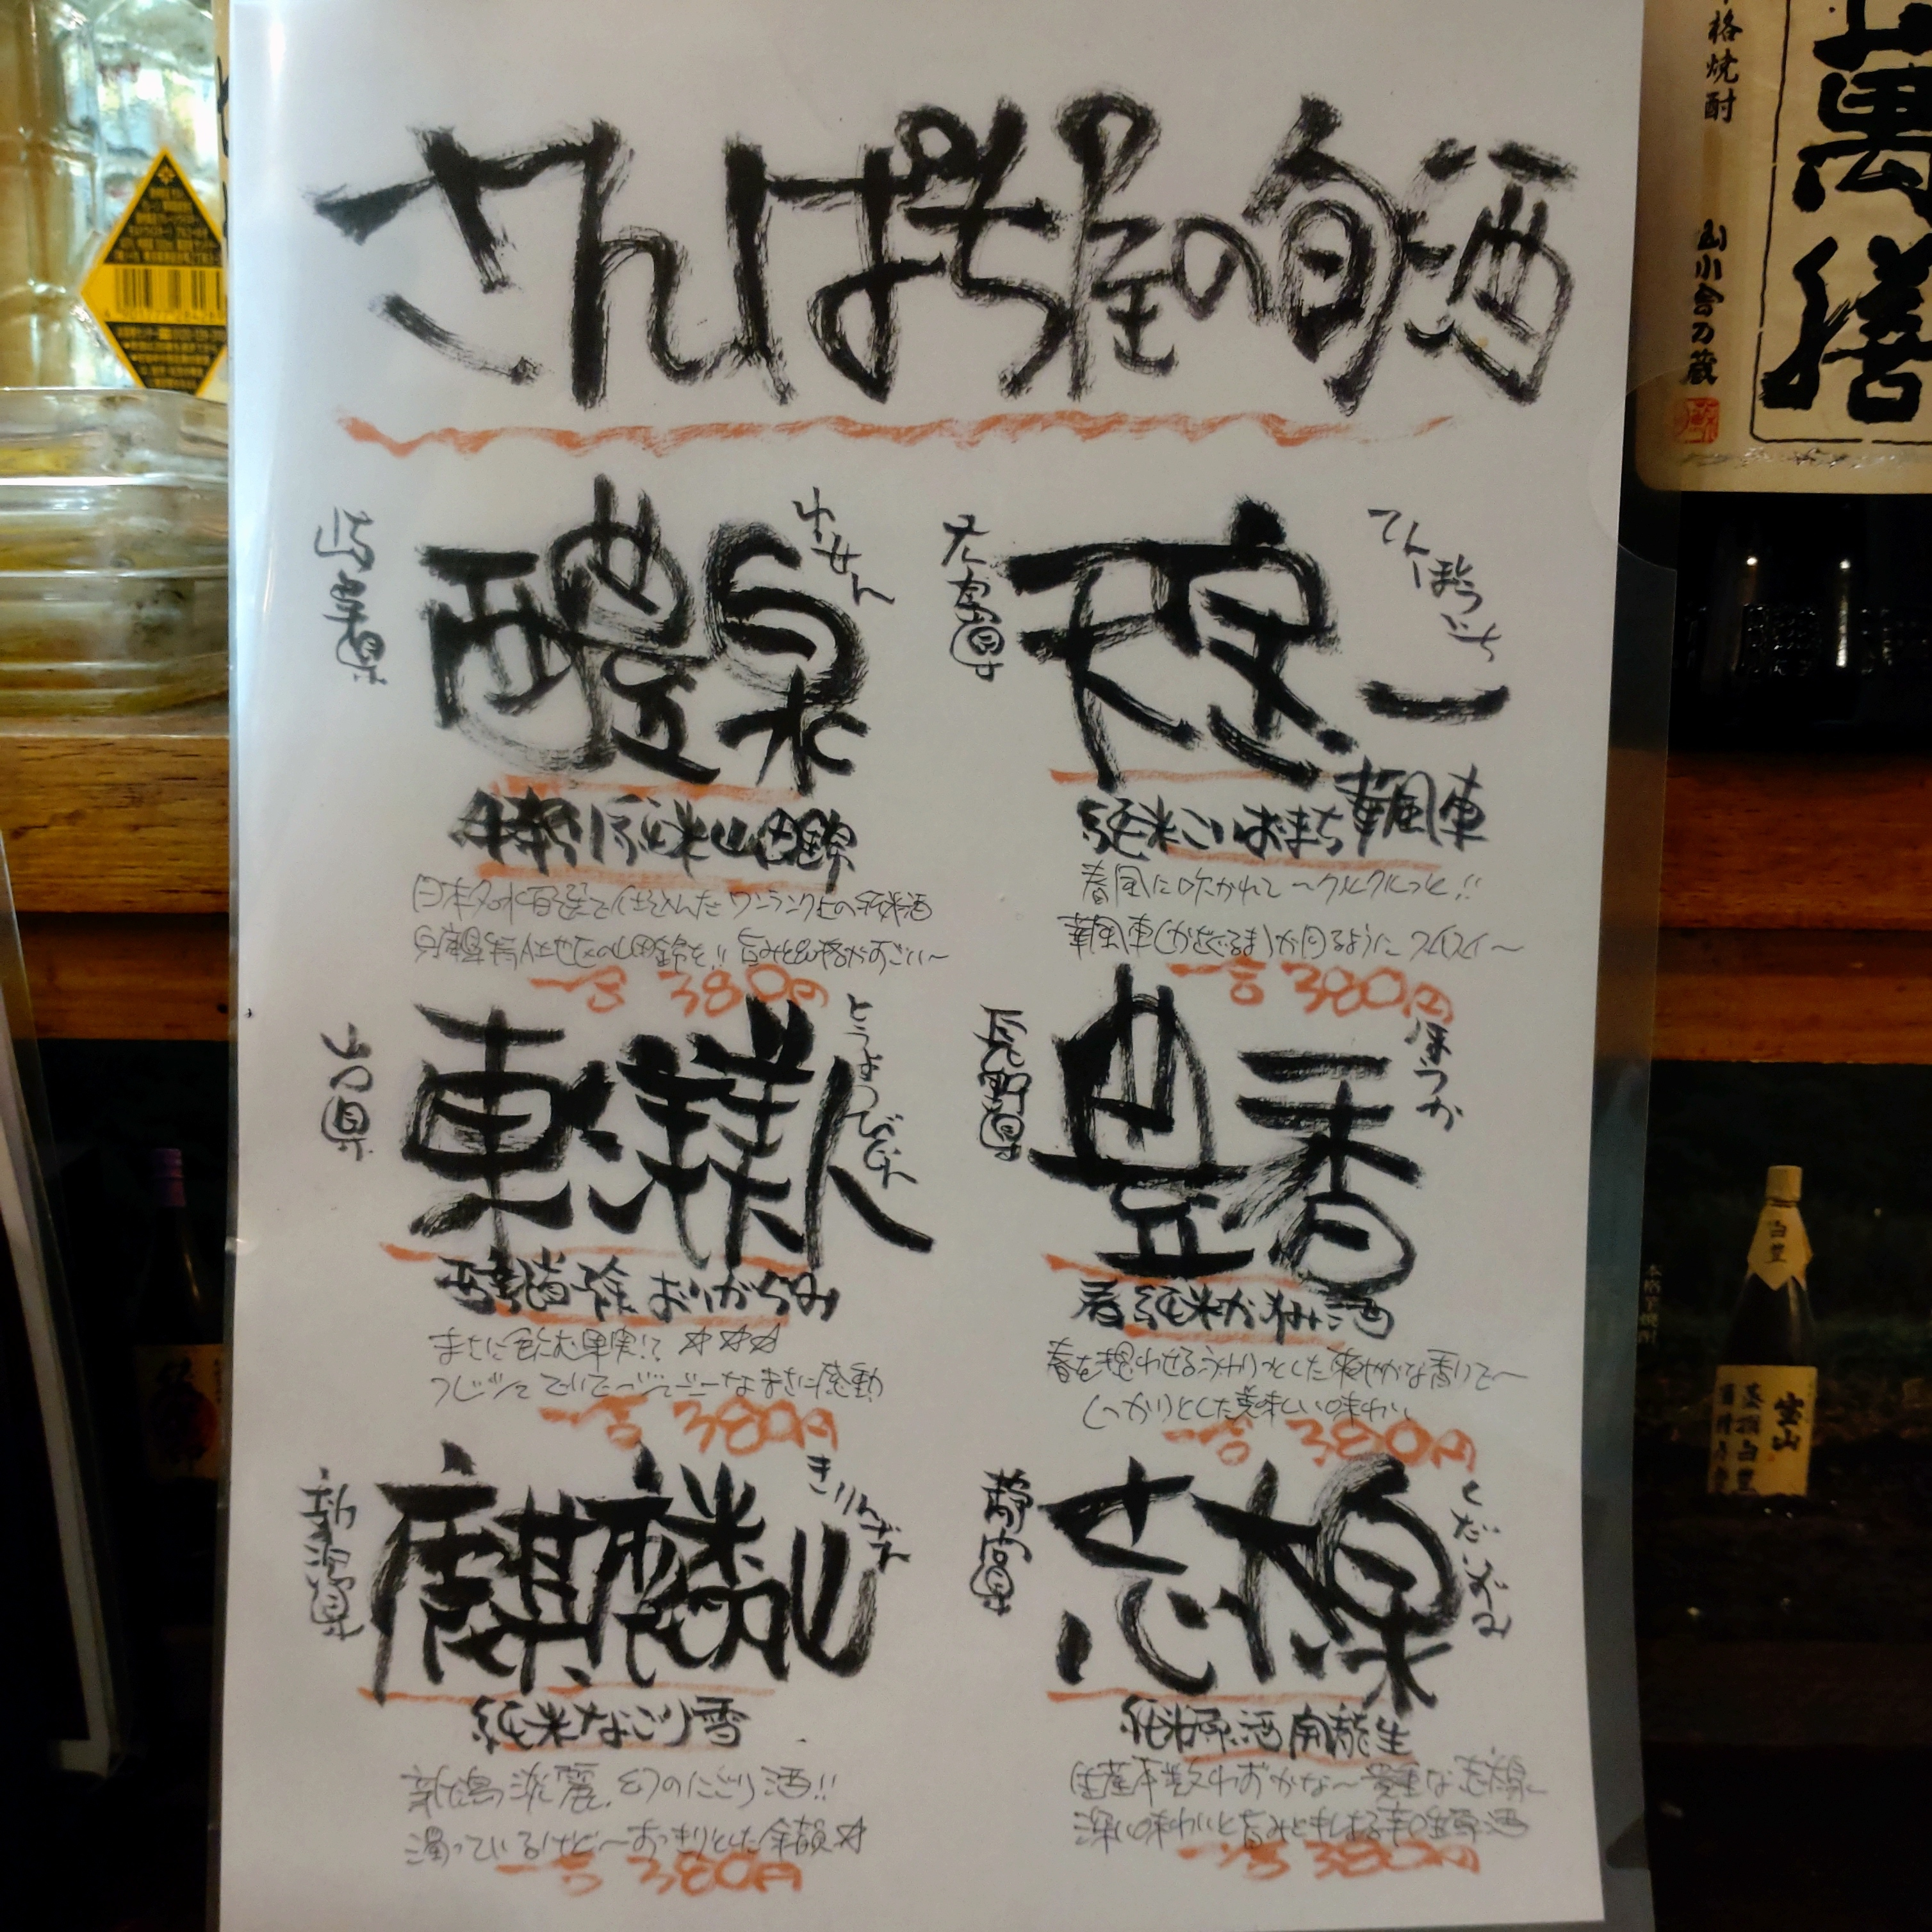 さんぱち屋の旬酒
岐阜県
醴泉
れいせん
特別純米山田錦
日本名水百選で仕込んだワンランク上の純米酒
兵庫県特A地区の山田錦を!! 旨みと品格がすごい〜
一合 380円
大
てんぽういち
天寶一
純米こいおまち 華風車
春風に吹かれて〜クルクルっと!!
華風車(かざぐるま)が回るように スイスイ〜
一合 380円
山口県
東洋美人
とうようびじん
醇道一途 おりがらみ
まさに飲む果実!? ☆☆☆
まさに感動
一合 380円
長野県
豊香
ほうか
春純米かすみ酒
春を想わせるうすりっとした爽やかな香りで〜
しっかりとした美味しい味わい
一合 380円
新潟県
麒麟山
きりんざん
純米なごり雪
新潟淡麗、幻のにごり酒!!
濁っているけど〜すっきりとした余韻☆
一合 380円
静岡県
志太泉
しだいずみ
純米原酒 開龍 生
生産本数わずかな〜貴重な志太泉〜
深い味わいと旨みときしまる辛口生原酒
一合 380円
本格焼酎
萬膳
山小舎乃蔵
白豊
宝山
蒸撰白豊